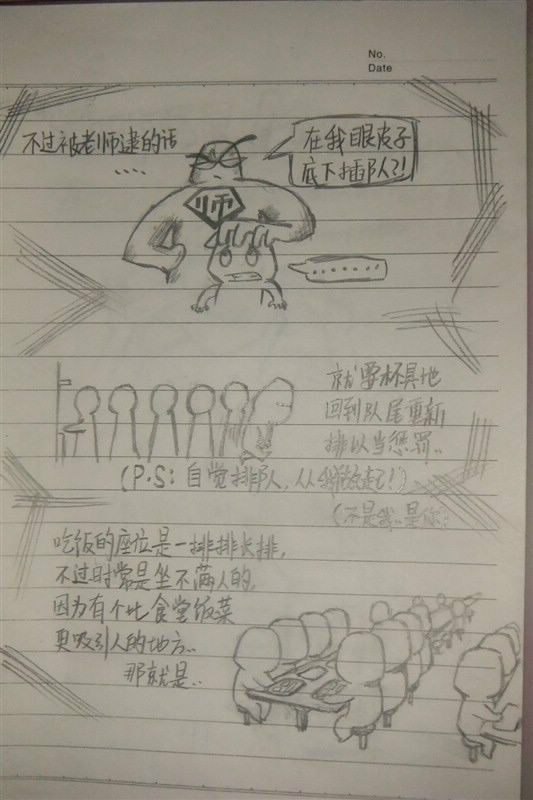 No.
Date
不过被老师逮的话
....
在我眼皮子
底下插队?!
师
.......
就要杯具地
回到队尾重新
排以当惩罚..
(P.S: 自觉排队,从我做起!)
(不是我..是你:
吃饭的座位是一排排长排,
不过时常是坐不满人的,
因为有个比食堂饭菜
更吸引人的地方..
那就是..